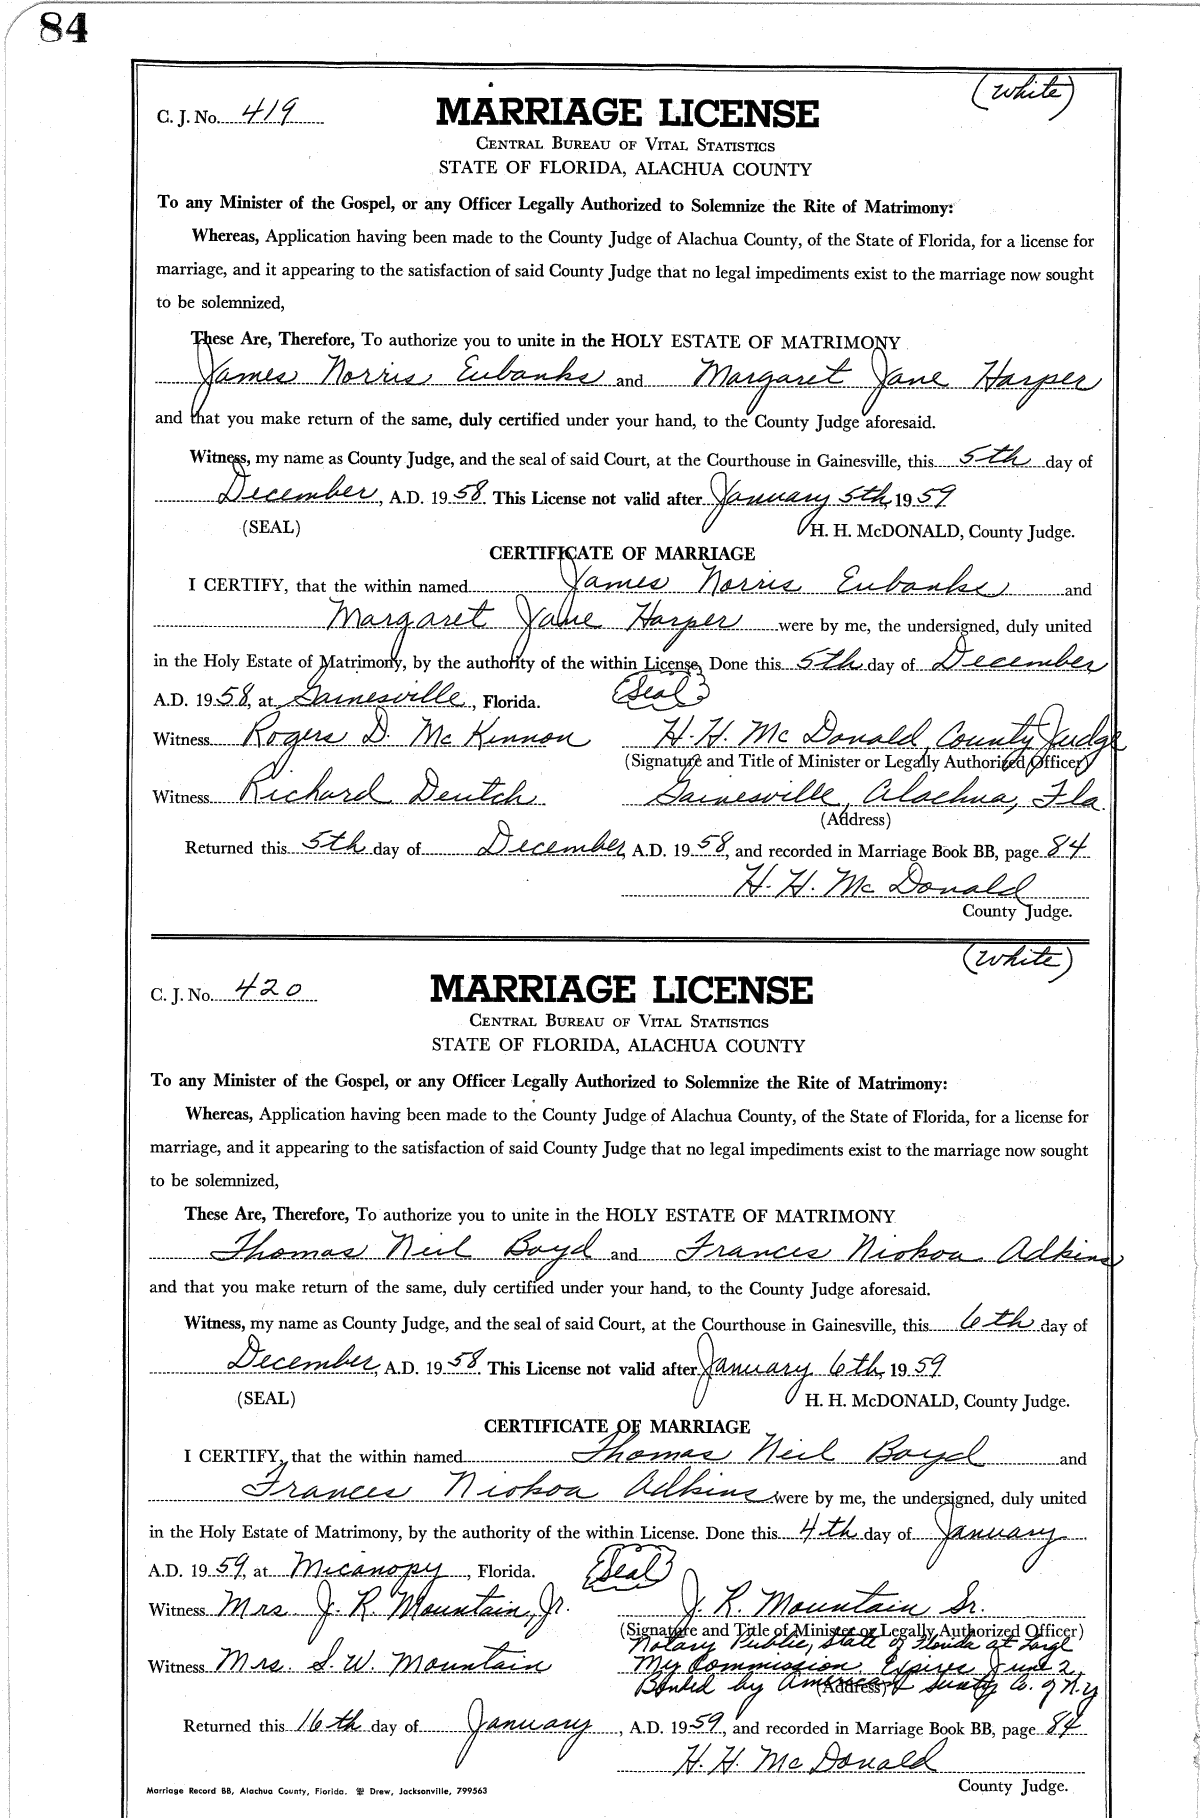 84
(White)
C. J. No. 419
MARRIAGE LICENSE
CENTRAL BUREAU OF VITAL STATISTICS
STATE OF FLORIDA, ALACHUA COUNTY
To any Minister of the Gospel, or any Officer Legally Authorized to Solemnize the Rite of Matrimony:
Whereas, Application having been made to the County Judge of Alachua County, of the State of Florida, for a license for
marriage, and it appearing to the satisfaction of said County Judge that no legal impediments exist to the marriage now sought
to be solemnized,
These Are, Therefore, To authorize you to unite in the HOLY ESTATE OF MATRIMONY
James Norris Eubanks and Margaret Jane Harper
and that you make return of the same, duly certified under your hand, to the County Judge aforesaid.
Witness, my name as County Judge, and the seal of said Court, at the Courthouse in Gainesville, this 5th day of
December, A.D. 1958. This License not valid after January 5th, 1959
(SEAL) H. H. McDONALD, County Judge.
CERTIFICATE OF MARRIAGE
I CERTIFY, that the within named James Norris Eubanks and
Margaret Jane Harper were by me, the undersigned, duly united
in the Holy Estate of Matrimony, by the authority of the within License. Done this 5th day of December,
A.D. 1958, at Gainesville, Florida. (Seal)
Witness Rogers D. McKinnon H. H. McDonald, County Judge
(Signature and Title of Minister or Legally Authorized Officer)
Witness Richard Deutch Gainesville, Alachua, Fla.
(Address)
Returned this 5th day of December, A.D. 1958, and recorded in Marriage Book BB, page 84
H. H. McDonald
County Judge.
(White)
C. J. No. 420
MARRIAGE LICENSE
CENTRAL BUREAU OF VITAL STATISTICS
STATE OF FLORIDA, ALACHUA COUNTY
To any Minister of the Gospel, or any Officer Legally Authorized to Solemnize the Rite of Matrimony:
Whereas, Application having been made to the County Judge of Alachua County, of the State of Florida, for a license for
marriage, and it appearing to the satisfaction of said County Judge that no legal impediments exist to the marriage now sought
to be solemnized,
These Are, Therefore, To authorize you to unite in the HOLY ESTATE OF MATRIMONY
Thomas Neil Boyd and Frances Niokoa Adkins
and that you make return of the same, duly certified under your hand, to the County Judge aforesaid.
Witness, my name as County Judge, and the seal of said Court, at the Courthouse in Gainesville, this 6th day of
December, A.D. 1958. This License not valid after January 6th, 1959
(SEAL) H. H. McDONALD, County Judge.
CERTIFICATE OF MARRIAGE
I CERTIFY, that the within named Thomas Neil Boyd and
Frances Niokoa Adkins were by me, the undersigned, duly united
in the Holy Estate of Matrimony, by the authority of the within License. Done this 4th day of January
A.D. 1959, at Micanopy, Florida. (Seal)
Witness Mrs J. R. Mountain, Jr. J. R. Mountain Sr.
(Signature and Title of Minister or Legally Authorized Officer)
Notary Public, State of Florida at Large
Witness Mrs. S. W. Mountain My Commission Expires June 2,
Bonded by American Co. of N.Y
(Address)
Returned this 16th day of January, A.D. 1959, and recorded in Marriage Book BB, page 84
H. H. McDonald
County Judge.
Marriage Record BB, Alachua County, Florida. Drew, Jacksonville, 799563